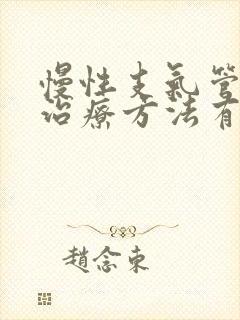 慢性支氣管
治療方法有
趙念東